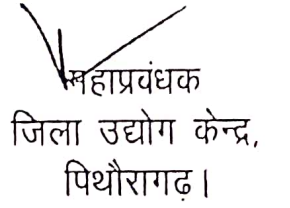 महाप्रवंधक
जिला उद्योग केन्द्र,
पिथौरागढ़।